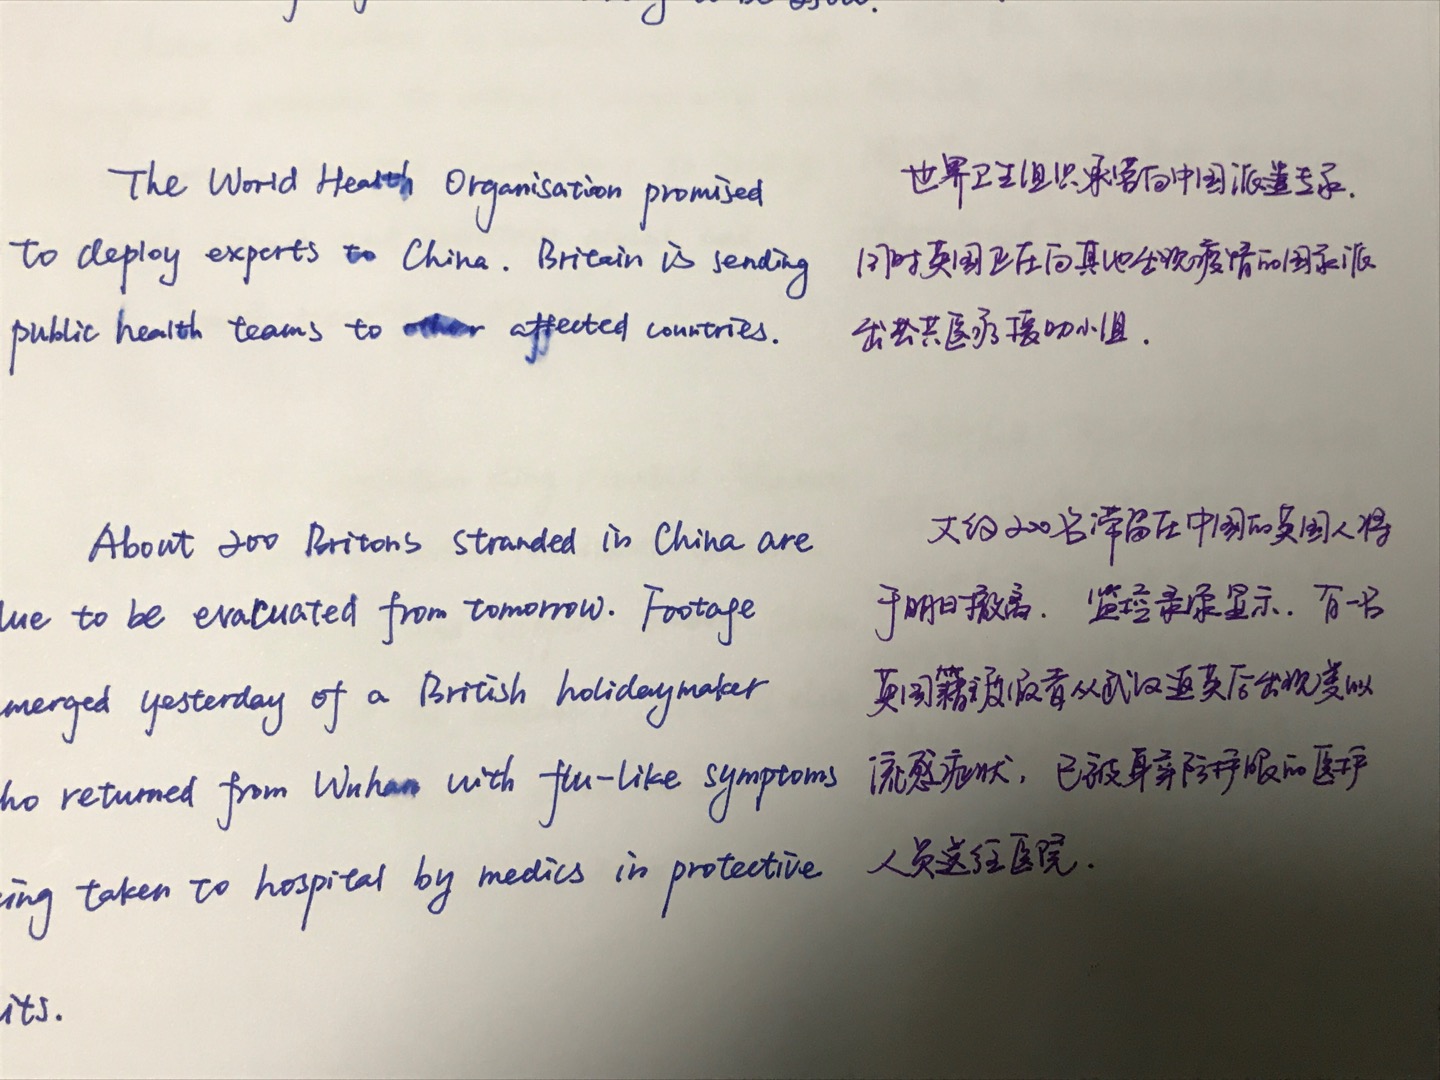 to be
The World Health Organisation promised
to deploy experts to China. Britain is sending
public health teams to other affected countries.
世界卫生组织承诺向中国派遣专家.
同时英国正在向其他出现疫情的国家派
出公共医疗援助小组.
About 200 Britons stranded in China are
ue to be evacuated from tomorrow. Footage
merged yesterday of a British holidaymaker
ho returned from Wuhan with flu-like symptoms
ing taken to hospital by medics in protective
its.
大约200名滞留在中国的英国人将
于明日撤离. 监控录像显示. 有一名
英国籍度假者从武汉返英后出现类似
流感症状, 已被身穿防护服的医护
人员送往医院.